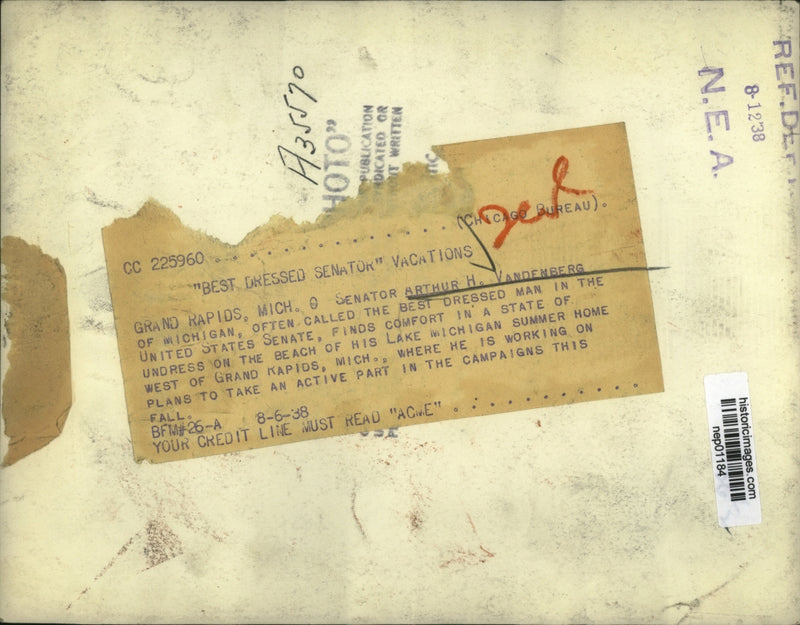 A35570
HOTO"
PUBLICATION
NDICATED OR
OUT WRITTEN
INC
REF.DEPT.
8-12'38
N.E.A.
(CHICAGO BUREAU).
CC 225960 . . . . . . . . . . . . . . . .
"BEST DRESSED SENATOR" VACATIONS
GRAND RAPIDS, MICH. 0 SENATOR ARTHUR H. VANDENBERG
OF MICHIGAN, OFTEN CALLED THE BEST DRESSED MAN IN THE
UNITED STATES SENATE, FINDS COMFORT IN A STATE OF
UNDRESS ON THE BEACH OF HIS LAKE MICHIGAN SUMMER HOME
WEST OF GRAND RAPIDS, MICH., WHERE HE IS WORKING ON
PLANS TO TAKE AN ACTIVE PART IN THE CAMPAIGNS THIS
FALL.
BFM#26-A 8-6-38
YOUR CREDIT LINE MUST READ "ACME" . . . . . . . . . . . .
historicimages.com
nep01184